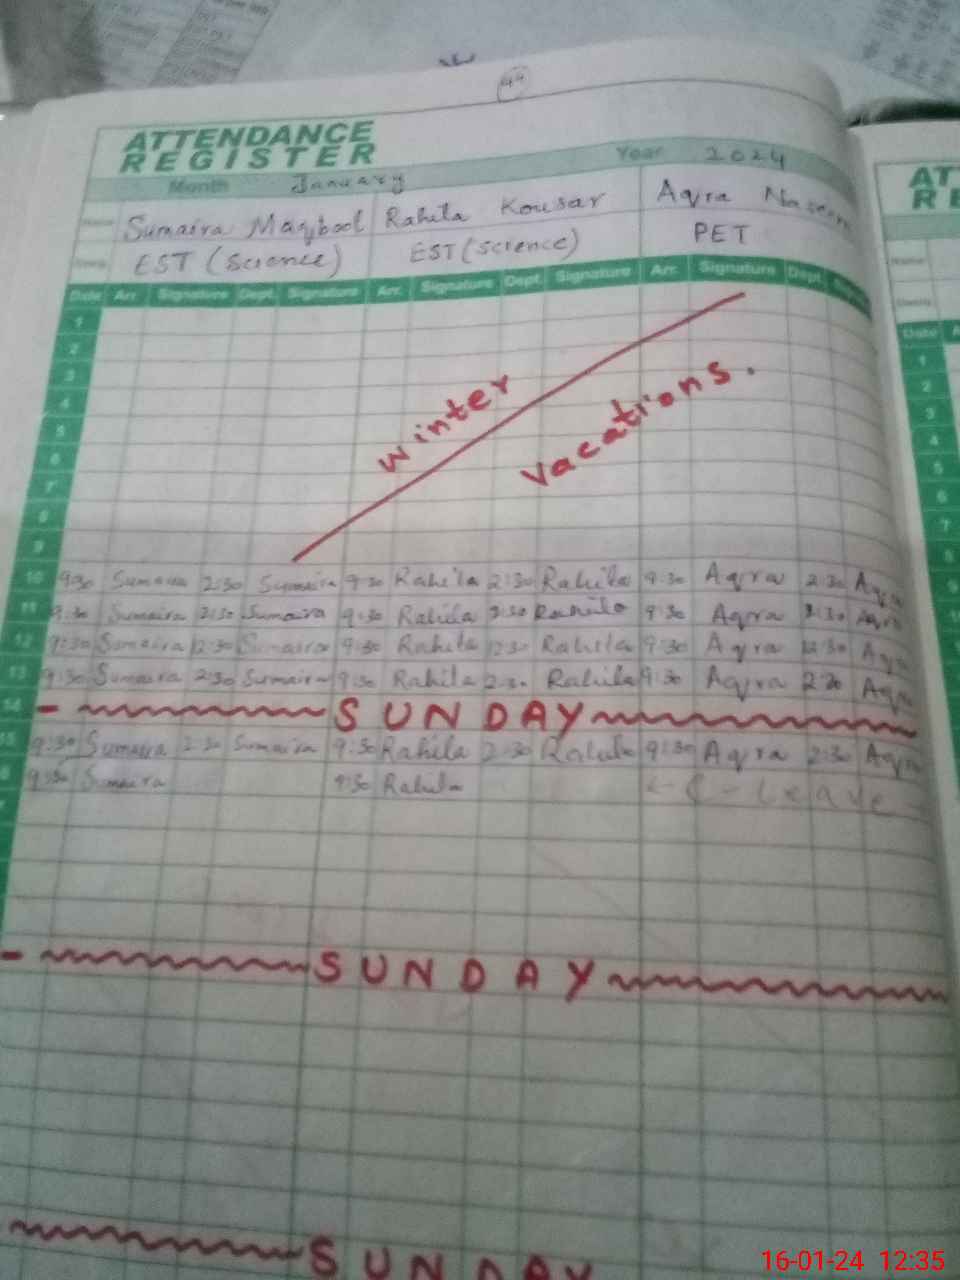 44
ATTENDANCE
REGISTER
Month January Year 2024
Name Sumaira Maqbool Rahila Kousar Aqra Naseem
Desig. EST (Science) EST (science) PET
Date Arr. Signature Dept. Signature Arr. Signature Dept. Signature Arr. Signature Dept.
1
2
3
4
5
6
7
8
9
winter
vacations.
10 9:30 Sumaira 2:30 Sumaira 9:30 Rahila 2:30 Rahila 9:30 Aqra 2:30 Aqra
11 9:30 Sumaira 2:30 Sumaira 9:30 Rahila 2:30 Rahila 9:30 Aqra 2:30 Aqra
12 9:30 Sumaira 12:30 Sumaira 9:30 Rahila 12:30 Rahila 9:30 Aqra 12:30 Aqra
13 9:30 Sumaira 2:30 Sumaira 9:30 Rahila 2:30 Rahila 9:30 Aqra 2:30 Aqra
14 SUNDAY
15 9:30 Sumaira 2:30 Sumaira 9:30 Rahila 2:30 Rahila 9:30 Aqra 2:30 Aqra
9:30 Sumaira 9:30 Rahila C - Leave
SUNDAY
SUNDAY
AT
RE
Name
Date A
1
2
3
4
5
6
7
8
9
16-01-24 12:35